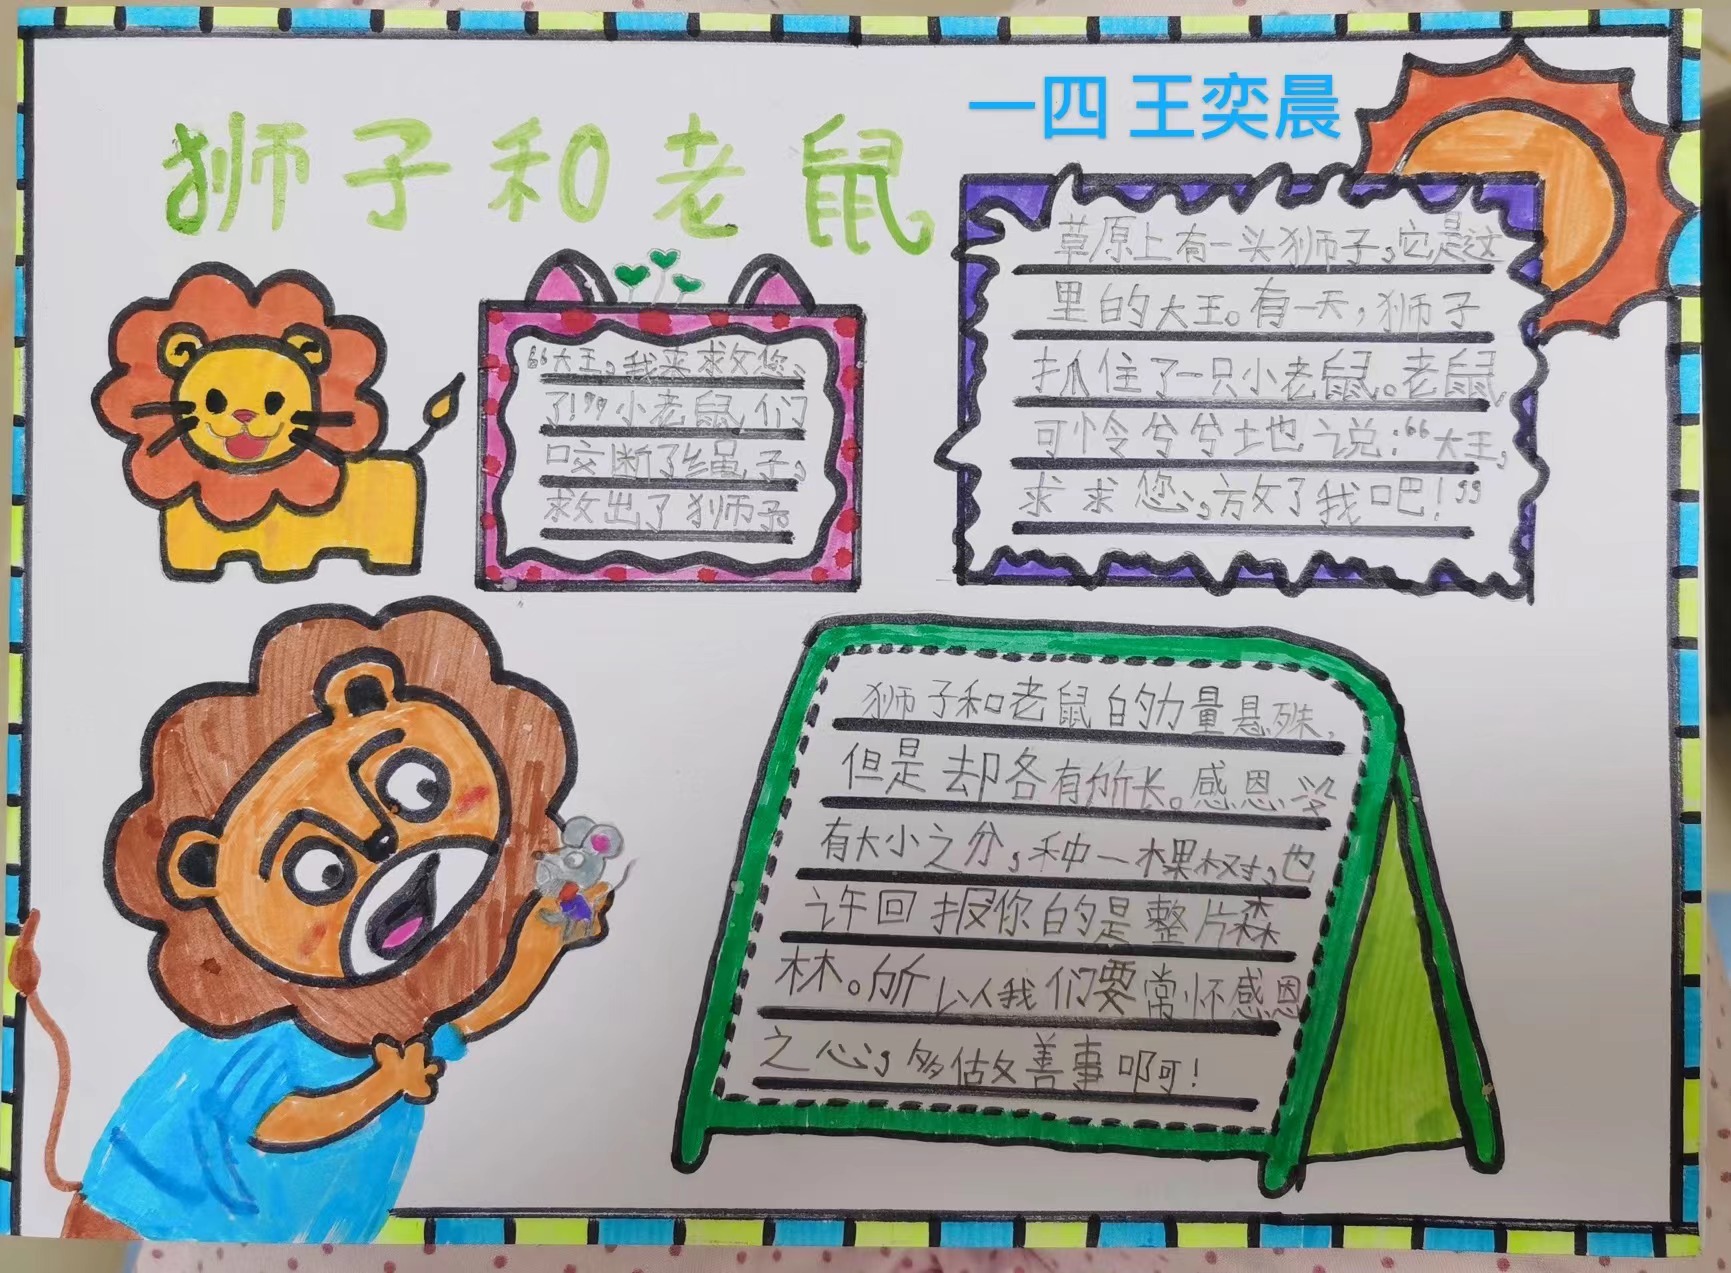 一四 王奕晨
狮子和老鼠
草原上有一头狮子，它是这
里的大王。有一天，狮子
抓住了一只小老鼠。老鼠
可怜兮兮地说：“大王，
求求您，放了我吧！”
“大王，我来救您
了！”小老鼠们
咬断了绳子，
救出了狮子。
狮子和老鼠的力量悬殊，
但是却各有所长。感恩没
有大小之分，种一棵树，也
许回报你的是整片森
林。所以我们要常怀感恩
之心，多做善事啊！